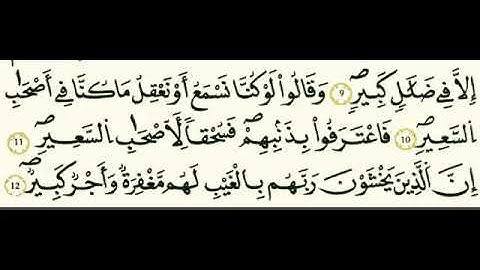 إِلَّا فِي ضَلَٰلٖ كَبِيرٖۖ 9 وَقَالُواْ لَوْ كُنَّا نَسْمَعُ أَوْ نَعْقِلُ مَا كُنَّا فِي أَصْحَٰبِ
اِ۬لسَّعِيرِۖ 10 فَاعْتَرَفُواْ بِذَنۢبِهِمْۖ فَسُحْقاٗ لِّأَصْحَٰبِ اِ۬لسَّعِيرِۖ 11
إِنَّ اَ۬لذِينَ يَخْشَوْنَ رَبَّهُم بِالْغَيْبِ لَهُم مَّغْفِرَةٞ وَأَجْرٞ كَبِيرٞۖ 12